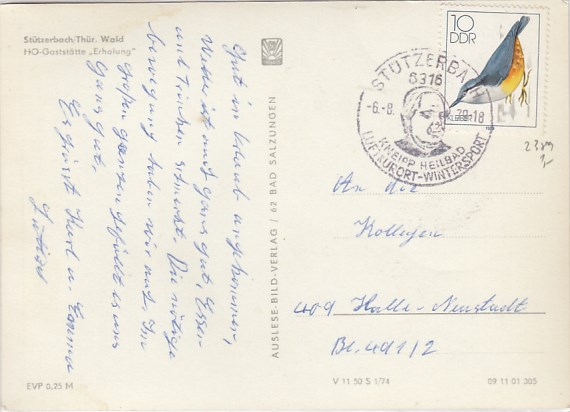 Stützerbach/Thür. Wald
HO-Gaststätte „Erholung"
Gut in Urlaub angekommen,
Wetter ist ganz gut, Essen
und Trinken schmeckt. Die nötige
bewegung haben wir auch. Im
großen ganzen gefällt es uns
Ganz gut,
Es grüßt Kurt u. Emma
AUSLESE-BILD-VERLAG / 62 BAD SALZUNGEN
10
DDR
KLEIBER
STÜTZERBACH
6316
-6.-8.
79-18
KNEIPP HEILBAD
LUFTKURORT-WINTERSPORT
An die
Kollegen
409 Halle-Neustadt
Bl. 491/2
EVP 0,25 M
V 11 50 S 1/74
09 11 01 305